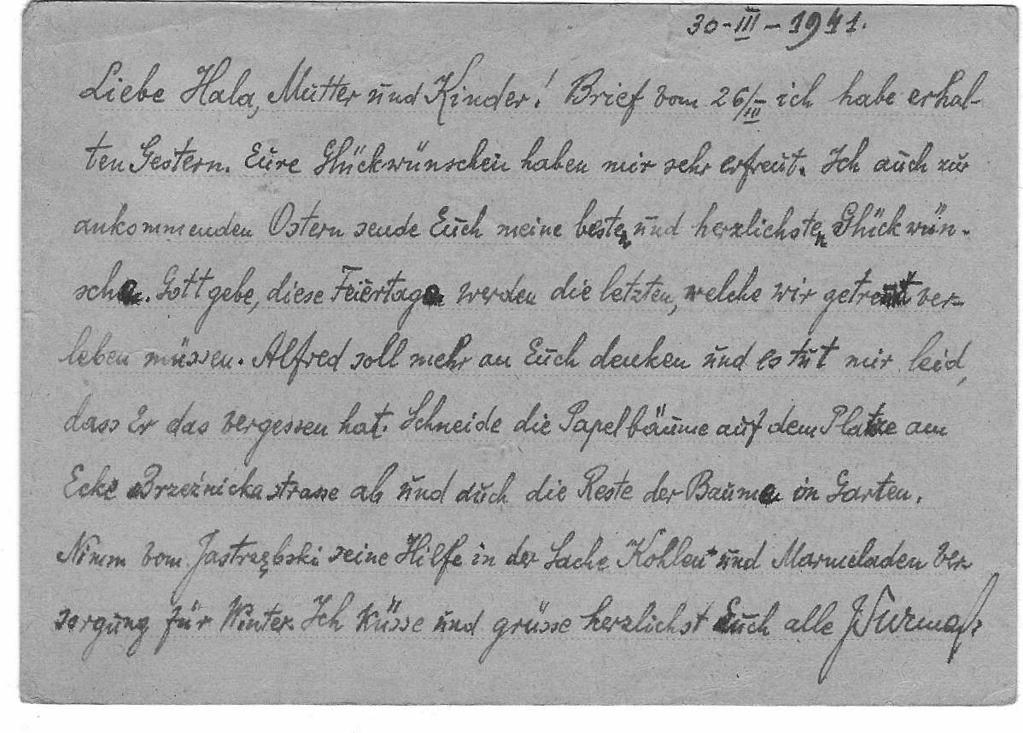 30-III-1941.
Liebe Hala, Mutter und Kinder! Brief vom 26/III ich habe erhal-
ten Gestern. Eure Glückwünschen haben mir sehr erfreut. Ich auch zur
ankommenden Ostern sende Euch meine besten und herzlichsten Glückwün-
sche. Gott gebe, diese Feiertage werden die letzten, welche wir getrennt ver-
leben müssen. Alfred soll mehr an Euch denken und es tut mir leid,
dass Er das vergessen hat. Schneide die Papelbäume auf dem Platze am
Ecke Brzeźnicka strasse ab und auch die Reste der Baume in Garten.
Nimm vom Jastrzębski seine Hilfe in der Sache Kohlen und Marmeladen Ver-
sorgung für Winter. Ich Küsse und grüsse herzlichst Euch alle